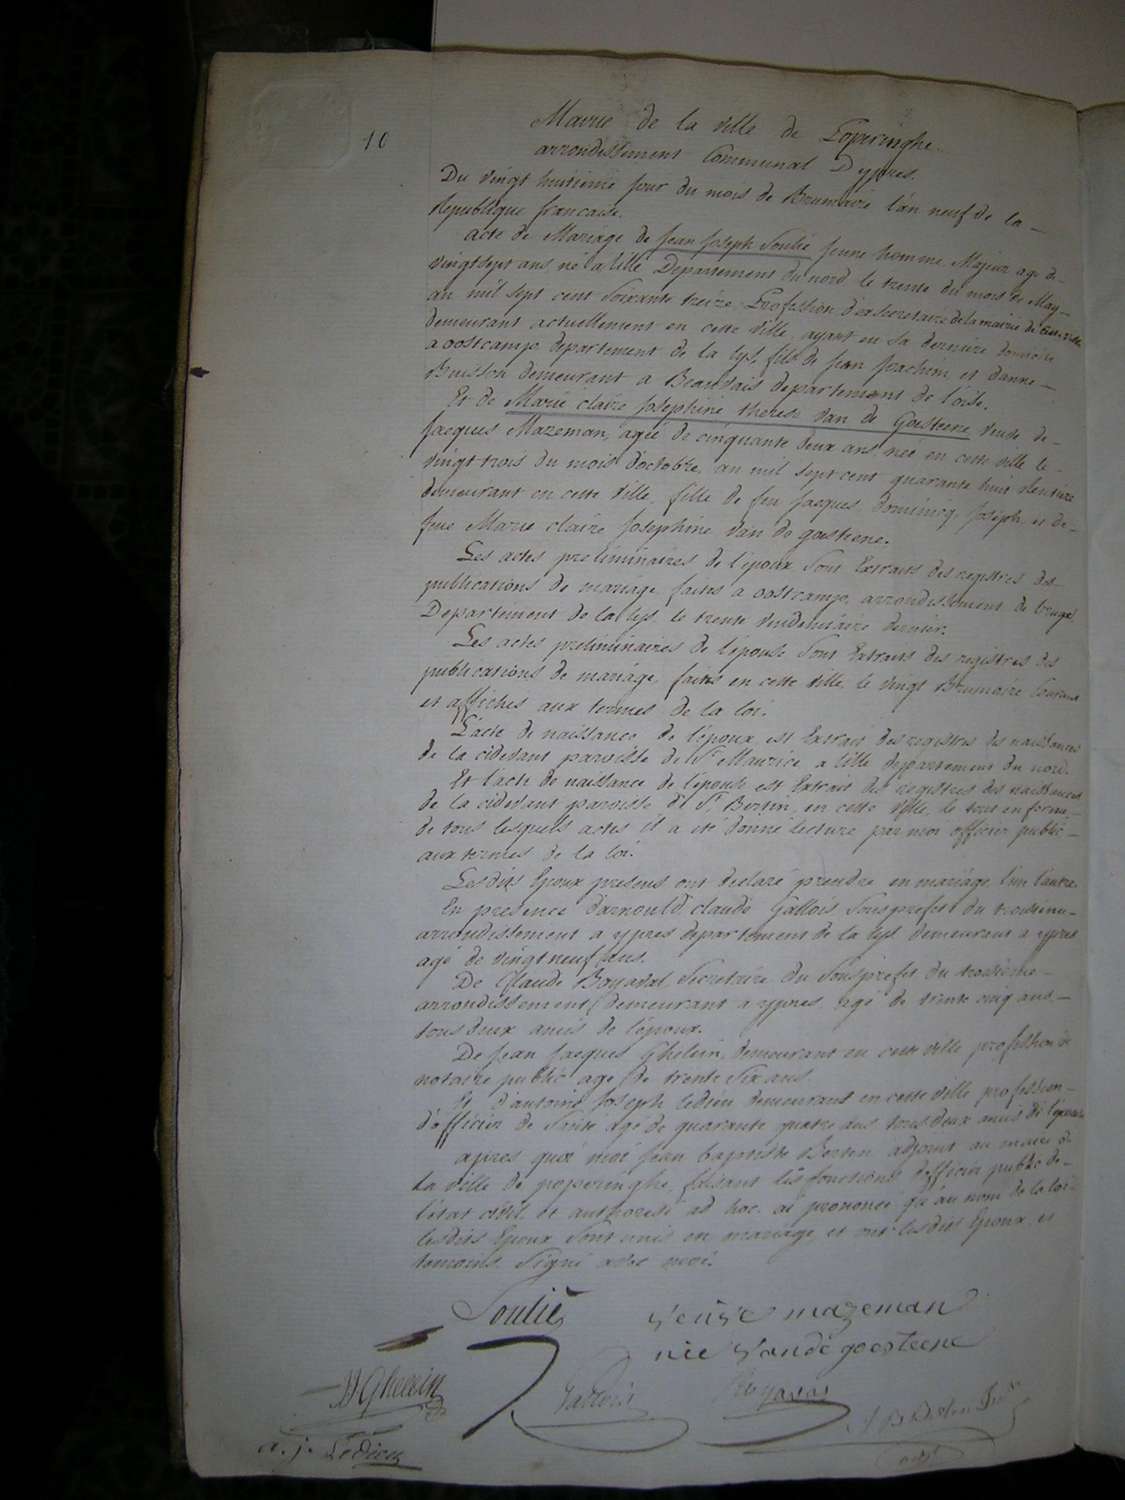 10
Mairie de la ville de Poperinghe
arrondissement Communal Dypres.
Du vingt huitieme jour du mois de Brumaire l'an neuf de la
Republique francaise.
acte de Mariage de Jean Joseph Soulié jeune homme Majeur agé de
vingt sept ans né a lille Departement du nord le trente du mois de May
an mil sept cent Soixante treize, Profession d'ex secretaire de la mairie de
demeurant actuellement en cette ville, ayant eu sa derniere domicile
a oostcamp departement de la lys, fils de Jean Joachim et d'anne
Buisson demeurant a Beauvais departement de l'oise.
Et de Marie claire Josephine therese Van de Goesteene veuve de
Jacques Mazeman, agée de cinquante deux ans née en cette ville le
vingt trois du mois d'octobre, an mil sept cent quarante huit rentiere
demeurant en cette ville, fille de feu Jacques dominicq Joseph et de
feue Marie claire Josephine Van de goesteene.
Les actes preliminaires de l'epoux Sont Extraits des registres des
publications de mariage faites a oostcamp, arrondissement de bruges
Departement de la lys, le trente Vendemiaire dernier.
Les actes preliminaires de l'épouse Sont Extraits des registres des
publications de mariage, faites en cette ville, le vingt Brumaire Courant
et affiches aux termes de la loi.
L'acte de naissance de l'époux, est Extrait des registres des naissances
de la cidevant paroisse de St Maurice a lille departement du nord.
Et l'acte de naissance de l'épouse est Extrait des registres des naissances
de la cidevant paroisse de St Bertin, en cette ville, le tout en forme,
de tous lesquels actes il a été donné lecture par moi officier public
aux termes de la loi.
Les dits Epoux presens ont declaré prendre en mariage l'un l'autre.
En presence d'arnould claude Gallois Sousprefet du troisieme
arrondissement a ypres departement de la lys demeurant a ypres
agé de vingt neuf ans.
De Claude Boyaval Secretaire du Sousprefet du troisieme
arrondissement demeurant a ypres, agé de trente cinq ans
tous deux amis de l'époux.
De Jean Jacques Ghelein, demeurant en cette ville profession de
notaire public agé de trente Six ans.
Et d'antoine Joseph Ledieu demeurant en cette ville profession
d'officier de Santé agé de quarante quatre ans tous deux amis de l'épouse
apres quoi moi Jean baptiste Bertin adjoint au maire de
la ville de poperinghe, faisant les fonctions d'officier public de
l'état civil, et authorisé ad hoc, ai prononcé qu'au nom de la loi
lesdits Epoux Sont unis en mariage, et ont lesdits Epoux et
temoins, Signé avec moi.
Soulié
Veuve mazeman
née Vande goesteene
JJ Ghelein
Gallois
Boyaval
J B Bertin
a. j. Ledieu